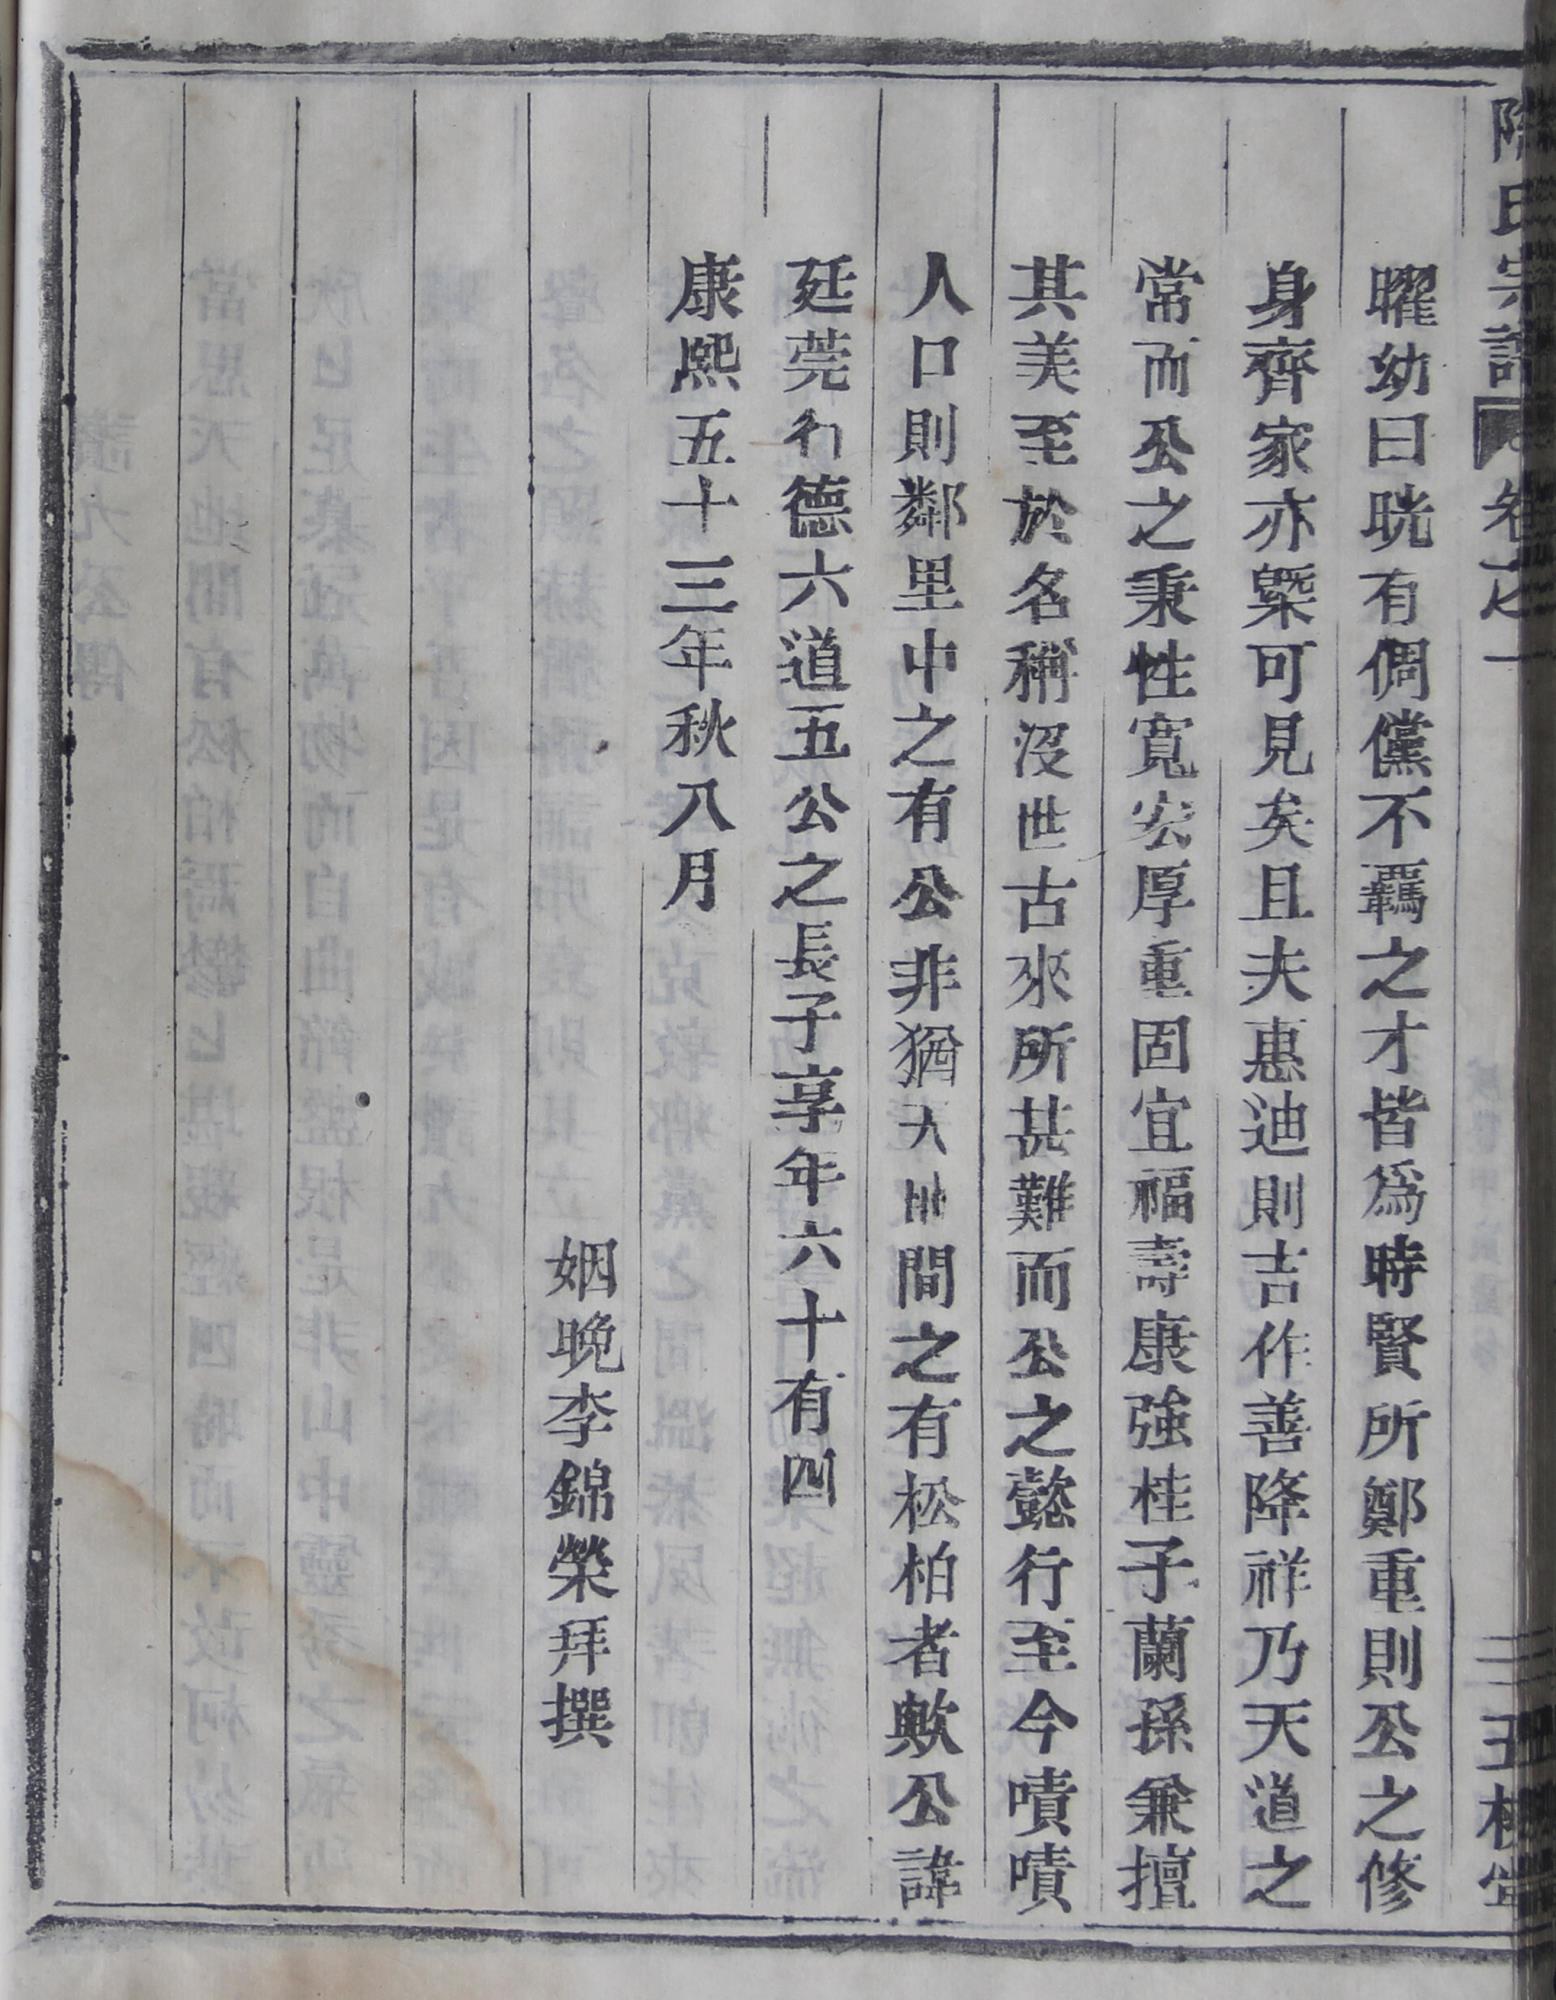 氏宗譜 卷之一 三 五桂堂
曜幼曰晄有倜儻不羈之才皆為時賢所鄭重則公之修
身齊家亦槩可見矣且夫惠迪則吉作善降祥乃天道之
常而公之秉性寬宏厚重固宜福壽康強桂子蘭孫兼擅
其美至於名稱沒世古來所甚難而公之懿行至今嘖嘖
人口則鄰里中之有公非猶人世間之有松柏者歟公諱
廷莞行德六道五公之長子享年六十有四
康熙五十三年秋八月
姻晚李錦榮拜撰